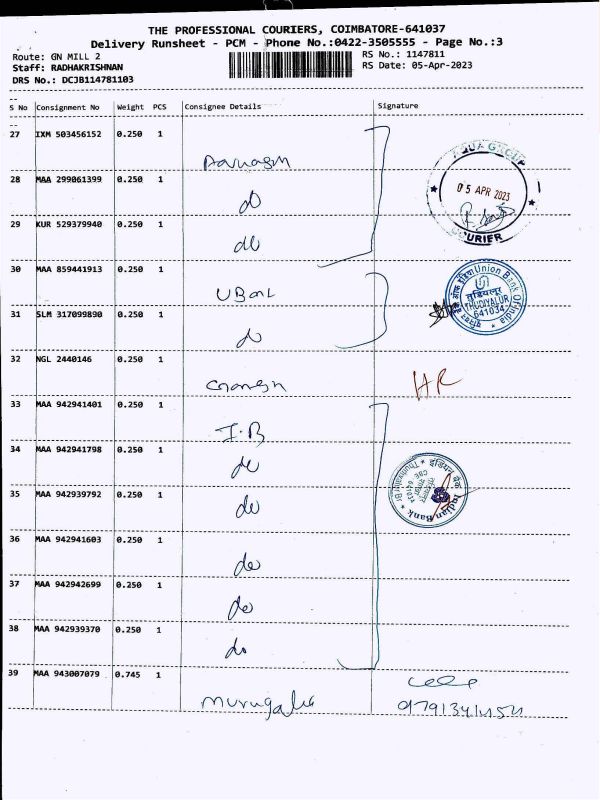 THE PROFESSIONAL COURIERS, COIMBATORE-641037
Delivery Runsheet - PCM - Phone No.:0422-3505555 - Page No.:3
Route: GN MILL 2
RS No.: 1147811
Staff: RADHAKRISHNAN
RS Date: 05-Apr-2023
DRS No.: DCJB114781103
S No Consignment No Weight PCS Consignee Details Signature
27 IXM 503456152 0.250 1
AQUA GROUP
28 MAA 299061399 0.250 1
05 APR 2023
do
29 KUR 529379940 0.250 1
COURIER
do
30 MAA 859441913 0.250 1
Union Bank Of India
UBank
तुडियलूर
THUDIYALUR
641034
31 SLM 317099890 0.250 1
do
32 NGL 2440146 0.250 1
Ganesh
HR
33 MAA 942941401 0.250 1
I.B
34 MAA 942941798 0.250 1
do
इंडियन बैंक
Indian Bank
35 MAA 942939792 0.250 1
do
36 MAA 942941603 0.250 1
do
37 MAA 942942699 0.250 1
do
38 MAA 942939370 0.250 1
do
39 MAA 943007079 0.745 1